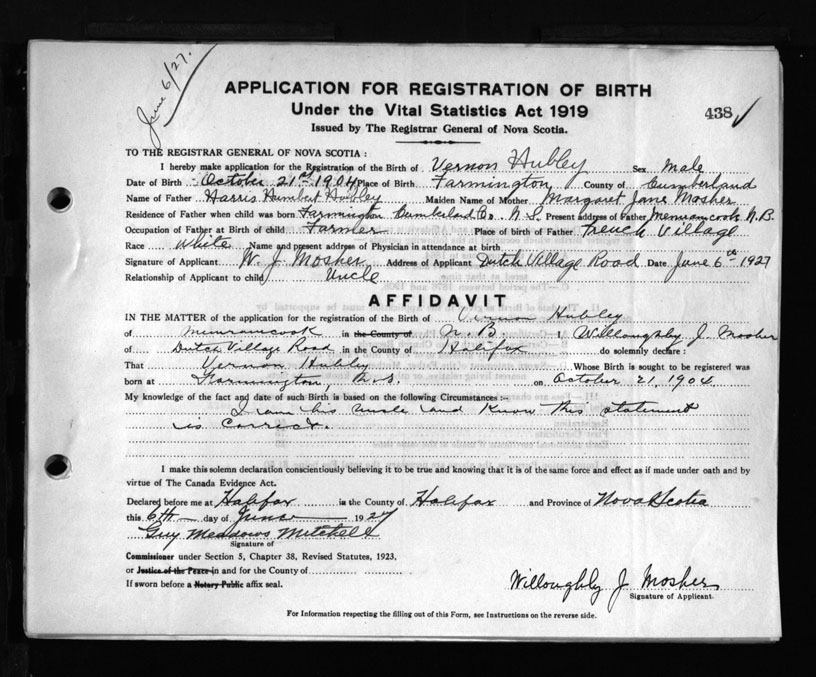 June 6/27.
APPLICATION FOR REGISTRATION OF BIRTH
Under the Vital Statistics Act 1919
438 ✓
Issued by The Registrar General of Nova Scotia.
TO THE REGISTRAR GENERAL OF NOVA SCOTIA :
I hereby make application for the Registration of the Birth of Vernon Hubley Sex Male
Date of Birth October 21st 1904 Place of Birth Farmington County of Cumberland
Name of Father Harris Humbert Hubley Maiden Name of Mother Margaret Jane Mosher
Residence of Father when child was born Farmington Cumberland Co. N.S. Present address of Father Memramcook N.B.
Occupation of Father at Birth of Child Farmer Place of birth of Father French Village
Race White Name and present address of Physician in attendance at birth
Signature of Applicant W. J. Mosher Address of Applicant Dutch Village Road Date June 6th 1927
Relationship of Applicant to child Uncle
AFFIDAVIT
IN THE MATTER of the application for the registration of the Birth of Vernon Hubley
of Memramcook in the County of N. B. I, Willoughby J. Mosher
of Dutch Village Road in the County of Halifax do solemnly declare :
That Vernon Hubley Whose Birth is sought to be registered was
born at Farmington, N.S. on October 21, 1904.
My knowledge of the fact and date of such Birth is based on the following Circumstances :-
I am his uncle and know this statement
is correct.
I make this solemn declaration conscientiously believing it to be true and knowing that it is of the same force and effect as if made under oath and by
virtue of The Canada Evidence Act.
Declared before me at Halifax in the County of Halifax and Province of Nova Scotia
this 6th day of June 1927
Guy Meadows Mitchell
Signature of
Commissioner under Section 5, Chapter 38, Revised Statutes, 1923,
or Justice of the Peace in and for the County of
If sworn before a Notary Public affix seal.
Willoughby J Mosher
Signature of Applicant.
For Information respecting the filling out of this Form, see Instructions on the reverse side.